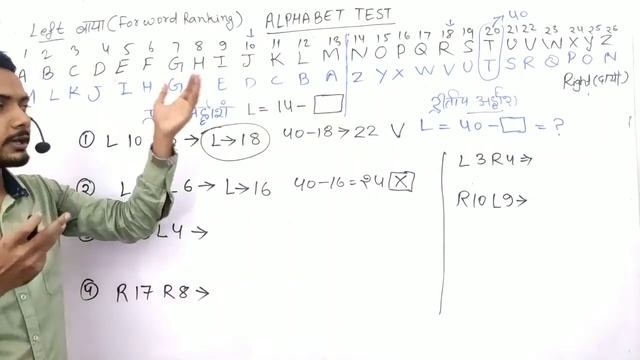 Left बायां (Forword Ranking) ALPHABET TEST
40
1 2 3 4 5 6 7 8 9 10 11 12 13 14 15 16 17 18 19 20 21 22 23 24 25 26
A B C D E F G H I J K L M N O P Q R S T U V W X Y Z
M L K J I H G E D C B A Z Y X W V U T S R Q P O N
Right (दायां)
L = 14 - द्वितीय अर्द्धांश L = 40 - = ?
① L 10 → L→18 40-18→22 V
② L 6 → L→16 40-16=24 X
L4→
④ R17 R8→
L3R4⇒
R10L9→